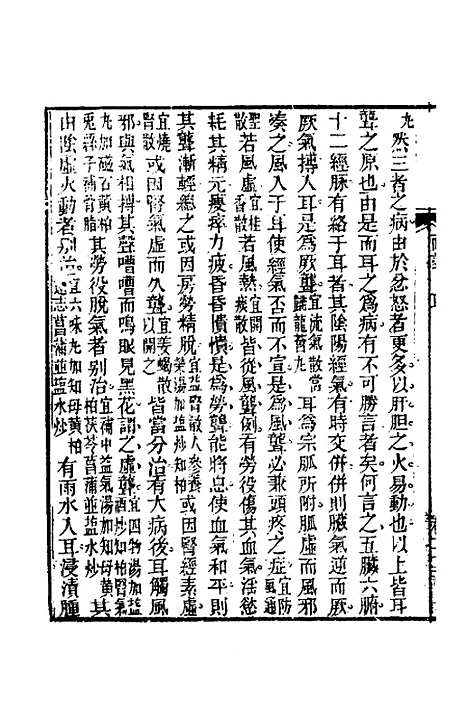 丸然三者之病由於忿怒者更多以肝胆之火易動也以上皆耳
聾之原也由是而耳之爲病有不可勝言者矣何言之五臟六腑
十二經脉有絡于耳者其陰陽經氣有時交併併則臓氣逆而厥
厥氣搏入耳是爲厥聾宜流氣散當歸龍薈丸耳爲宗脈所附脈虛而風邪
奏之風入于耳使經氣否而不宣是爲風聾必兼頭疼之症宜防風通
聖散若風虛宜桂香散若風熱宜開痰散皆從風聾例有勞役傷其血氣淫慾
耗其精元瘦瘁力疲昏昏憒憒是爲勞聾能將息使血氣和平則
其聾漸輕總之或因房勞精脫宜益腎散人參養榮湯加鹽炒知母或因腎經素虛
宜燒腎散或因腎氣虛而久聾宜姜蝎散以開之皆當分治有大病後耳觸風
邪與氣相搏其聲嘈嘈而鳴眼見黑花謂之虛聾宜四物湯加酒炒知柏腎氣
丸加磁石黃柏兎絲子補骨脂其勞役脫氣者别治宜補中益氣湯加知母黃柏茯苓菖蒲並盐水炒其
由陰虛火動者别治宜六味丸加知母黃柏遠志菖蒲並盐水炒有雨水入耳浸漬腫